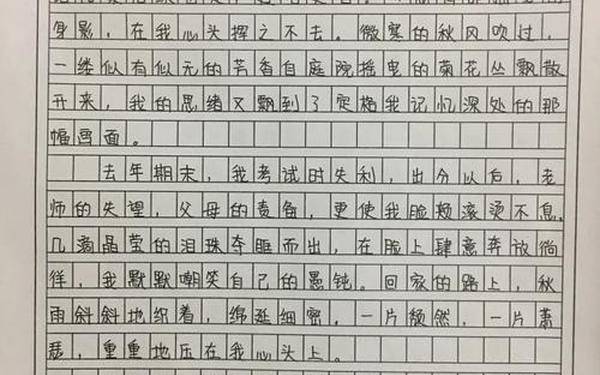 身影，在我心头挥之不去。微寒的秋风吹过，
一缕似有似无的芳香自庭院摇曳的菊花丛飘散
开来，我的思绪又飘到了定格我记忆深处的那
幅画面。
去年期末，我考试时失利，出分以后，老
师的失望，父母的责备，更使我脸颊滚烫不息。
几滴晶莹的泪珠夺眶而出，在脸上肆意奔放徜
徉，我默默嘲笑自己的愚钝。回家的路上，秋
雨斜斜地织着，绵延细密，一片颓然，一片萧
瑟，重重地压在我心头上。